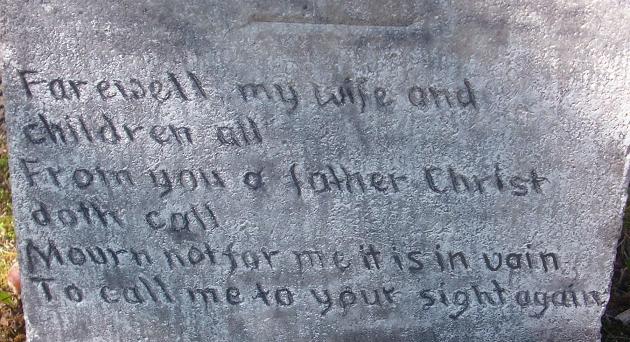 Farewell my wife and
children all
From you a father Christ
doth call
Mourn not for me it is in vain
To call me to your sight again